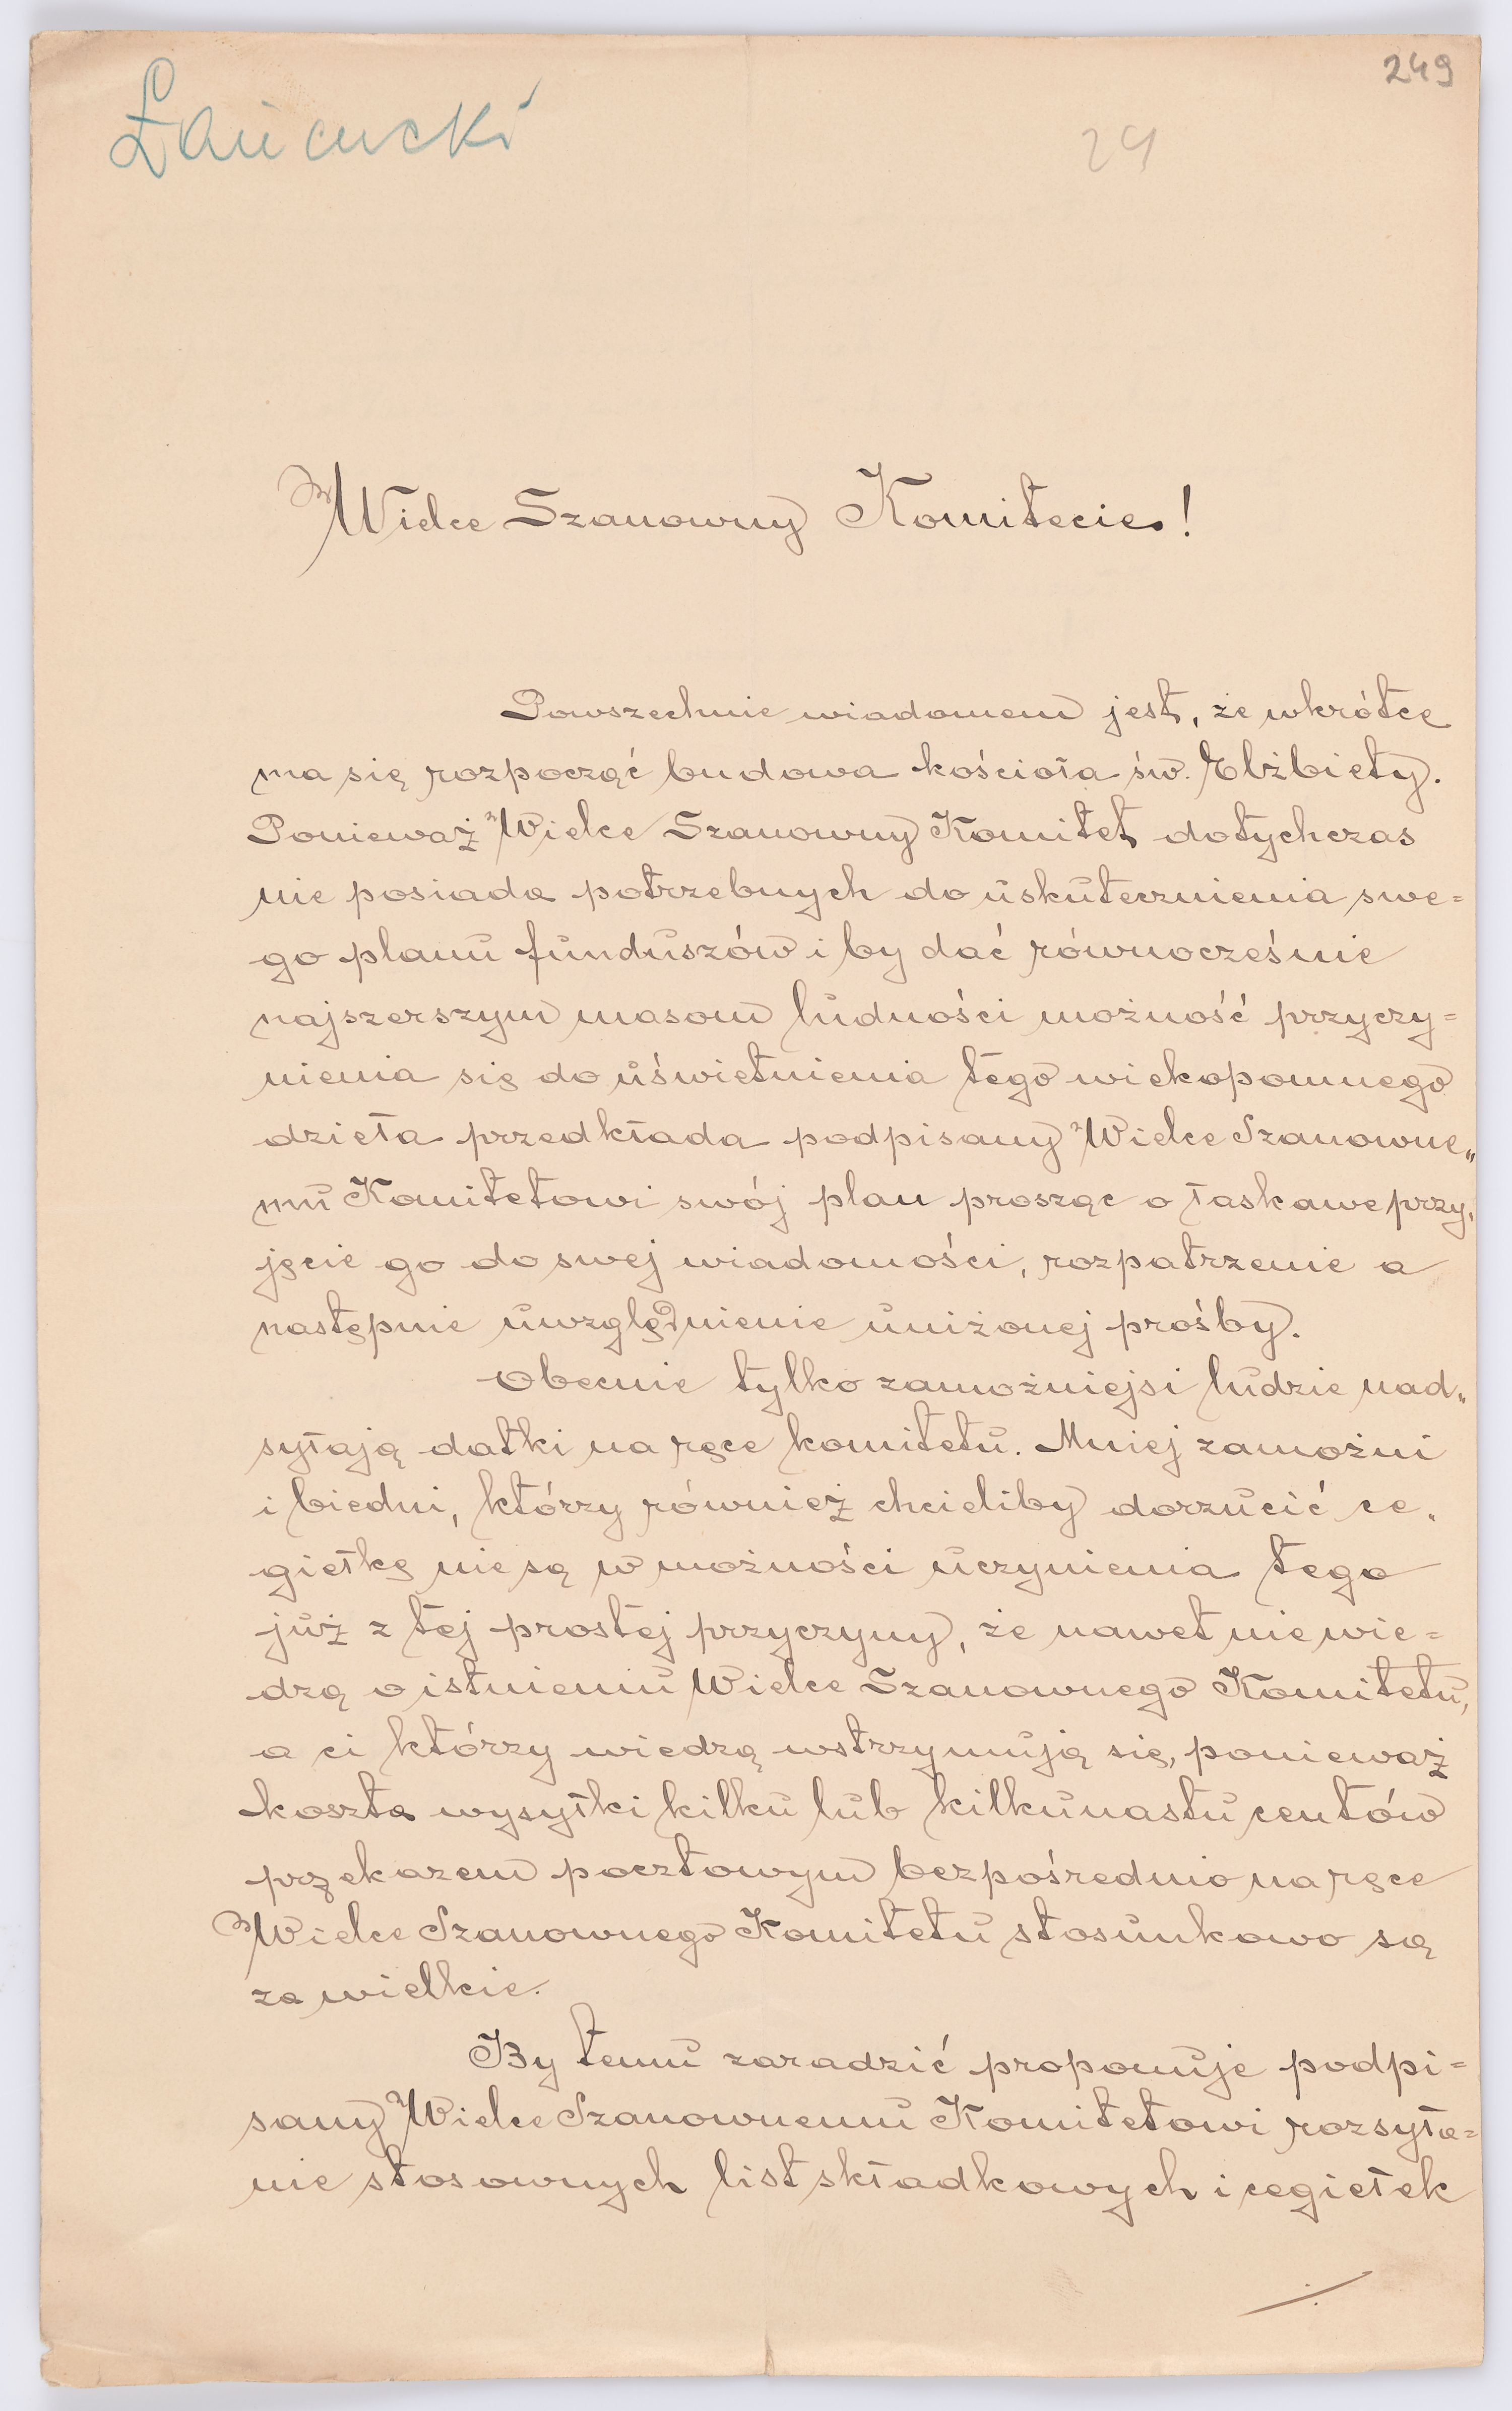 249
Łańcucki
29
Wielce Szanowny Komitecie!
Powszechnie wiadomem jest, że wkrótce
ma się rozpocząć budowa kościoła św. Elżbiety.
Ponieważ Wielce Szanowny Komitet dotychczas
nie posiada potrzebnych do uskutecznienia swe=
go planu funduszów i by dać równocześnie
najszerszym masom ludności możność przyczy=
nienia się do uświetnienia tego wiekopomnego
dzieła przedkłada podpisany Wielce Szanowne„
mu Komitetowi swój plan prosząc o łaskawe przy„
jęcie go do swej wiadomości, rozpatrzenie a
następnie uwzględnienie uniżonej prośby.
Obecnie tylko zamożniejsi ludzie nad„
syłają datki na ręce komitetu. Mniej zamożni
i biedni, którzy również chcieliby dorzucić ce„
giełkę nie są w możności uczynienia tego
już z tej prostej przyczyny, że nawet nie wie=
dzą o istnieniu Wielce Szanownego Komitetu,
a ci którzy wiedzą wstrzymują się, ponieważ
koszta wysyłki kilku lub kilkunastu centów
przekazem pocztowym bezpośrednio na ręce
Wielce Szanownego Komitetu stosunkowo są
za wielkie.
By temu zaradzić proponuje podpi=
sany Wielce Szanownemu Komitetowi rozsyła=
nie stosownych list składkowych i cegiełek
./.